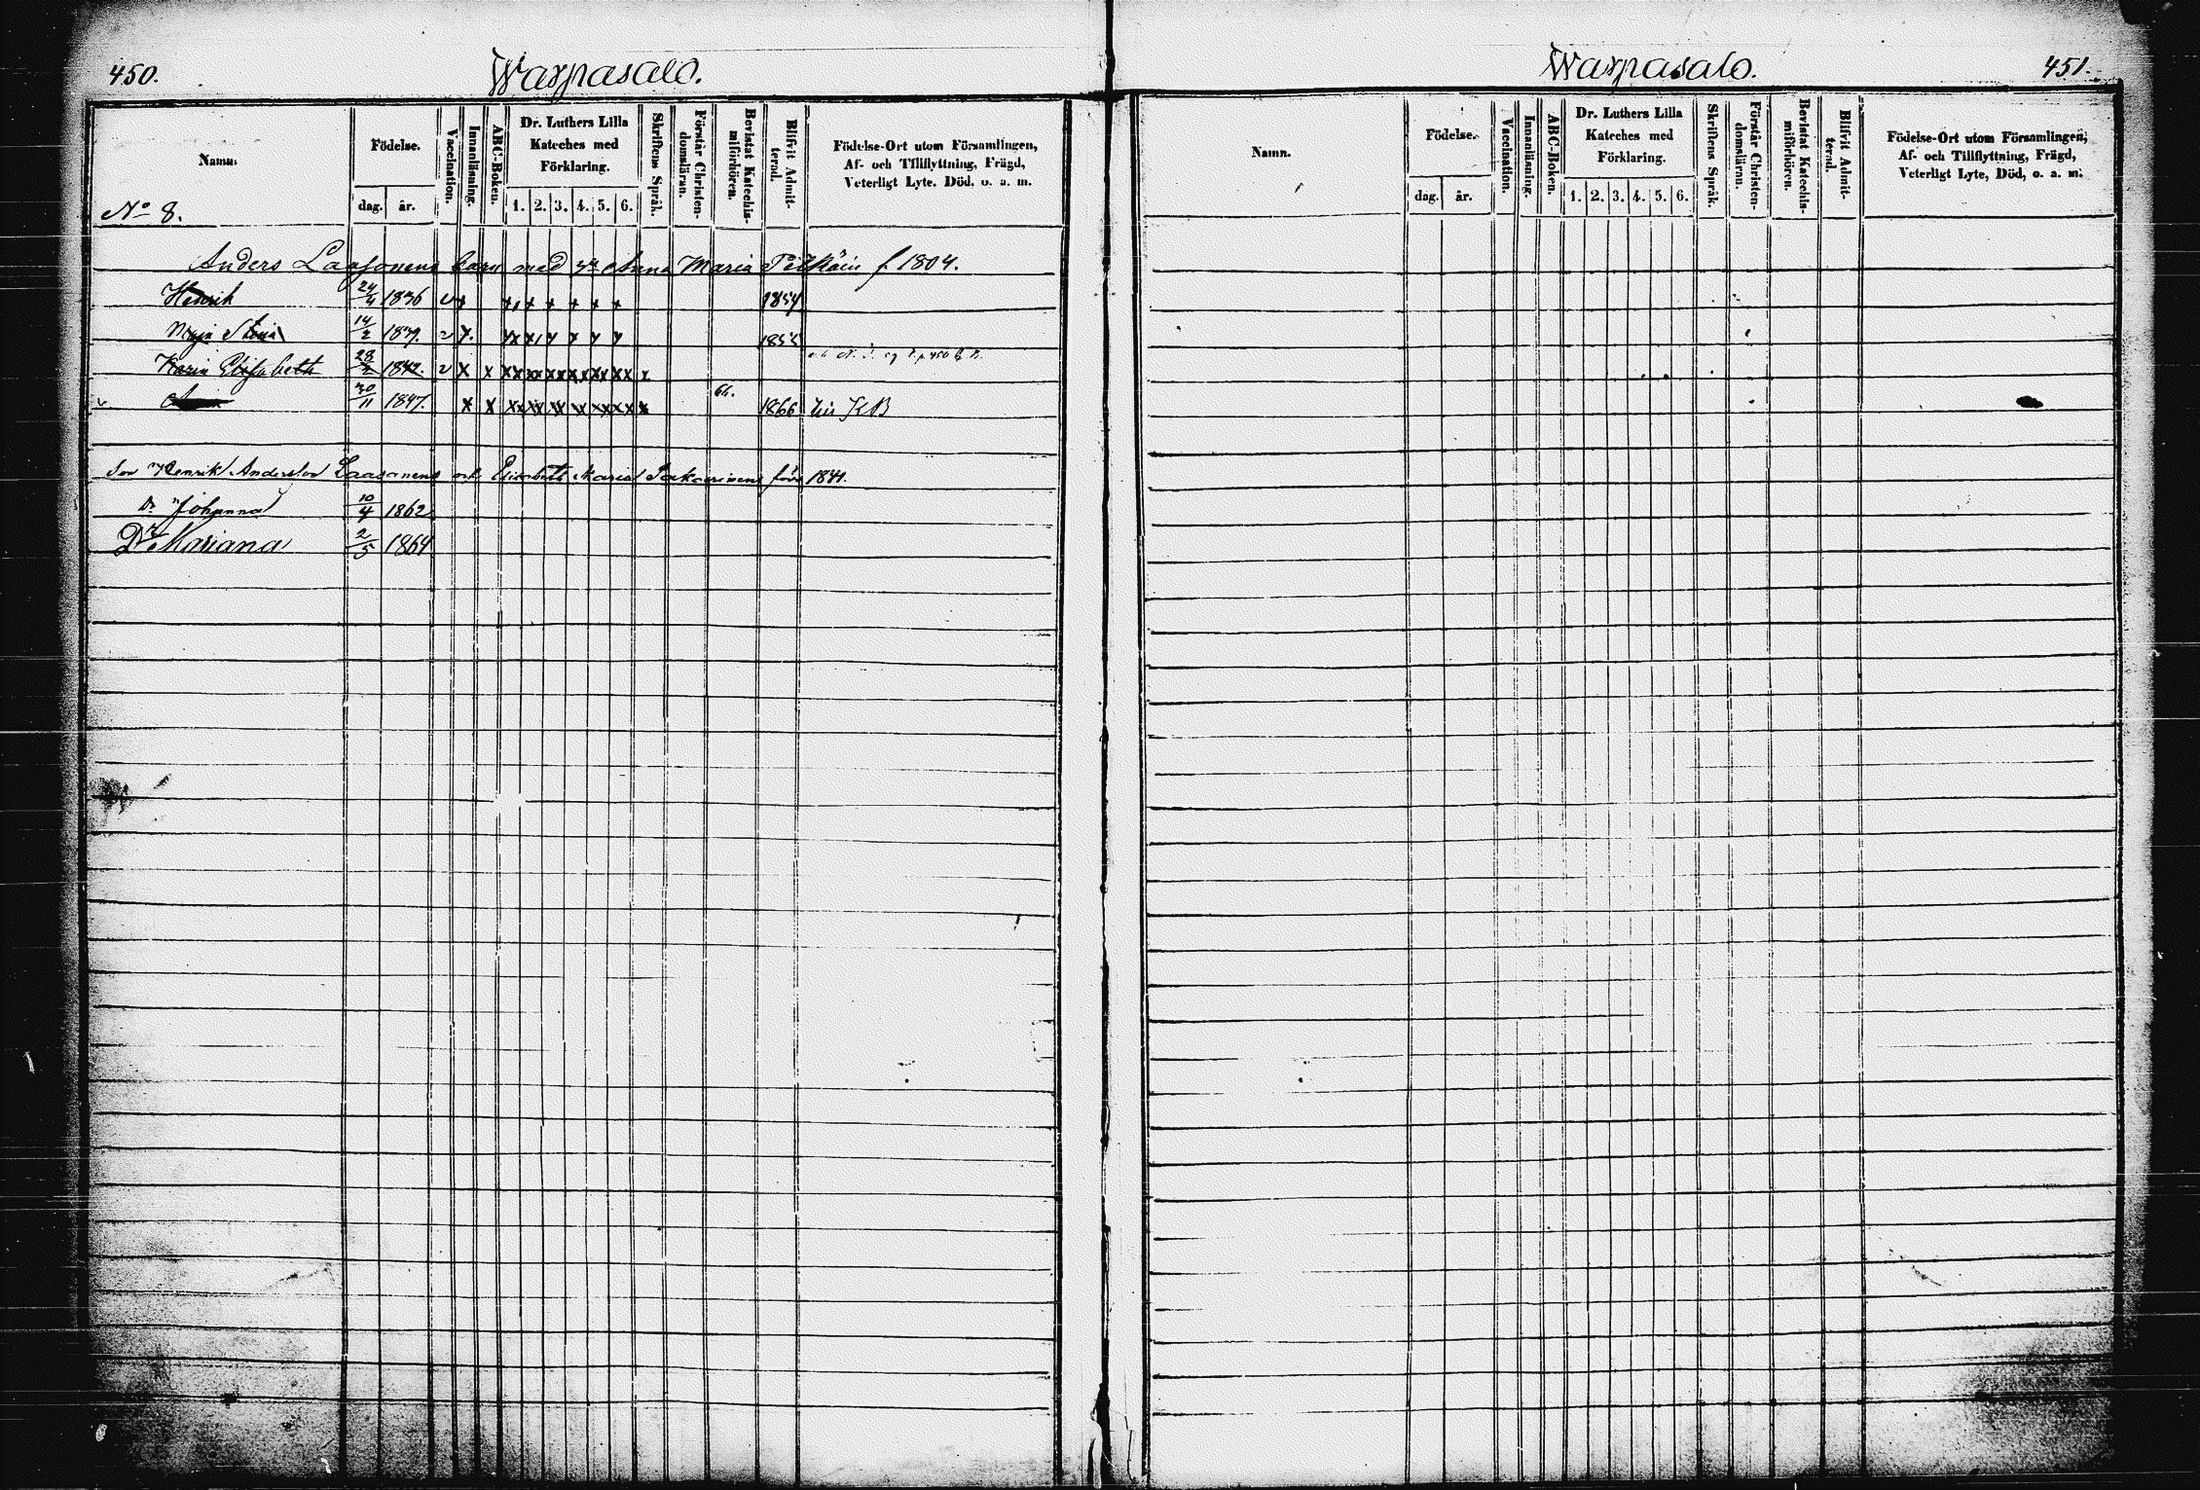 450.
Warpasalo.
Namn.
Födelse.
dag.
år.
Vaccination.
Innanläsning.
ABC-Boken.
Dr. Luthers Lilla
Kateches med
Förklaring.
1. 2. 3. 4. 5. 6.
Skriftens Språk.
Förstår Christen-
domsläran.
Bevistat Katechis-
miförhören.
Blifvit Admit-
terad.
Födelse-Ort utom Församlingen,
Af- och Tillflyttning, Frägd,
Veterligt Lyte. Död. o. a. m.
No 8.
Anders Laasonens barn med Anna Maria f. 1804.
Henrik 24/4 1836 v x x x x x x x 1854
Maja Stina 14/2 1839. v x. x x x x x x 1855
Karin Elisabeth 28/2 1842. v x x xx xx xx xx xx xx x
v 30/11 1847. x x xx xx xx xx xx xx x 66. 1866 KB
Son Henrik Andersson Laasonens och Elisabeth Maria född 1841.
Dr Johanna 10/4 1862
Dr Mariana 2/5 1864
Warpasalo.
451.
Namn.
Födelse.
dag.
år.
Vaccination.
Innanläsning.
ABC-Boken.
Dr. Luthers Lilla
Kateches med
Förklaring.
1. 2. 3. 4. 5. 6.
Skriftens Språk.
Förstår Christen-
domsläran.
Bevistat Katechis-
miförhören.
Blifvit Admit-
terad.
Födelse-Ort utom Församlingen,
Af- och Tillflyttning, Frägd,
Veterligt Lyte, Död, o. a. m.